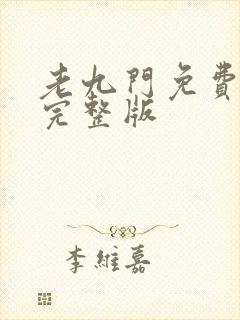 老九門免費
完整版
李維嘉